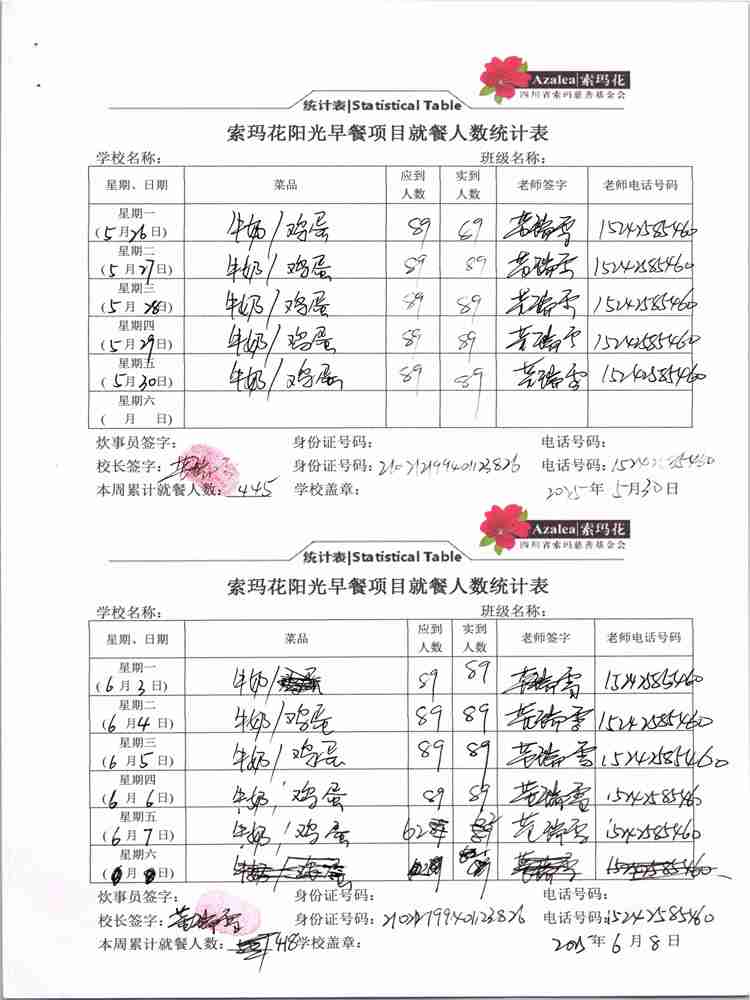 Azalea 索玛花
四川省索玛慈善基金会
统计表|Statistical Table
索玛花阳光早餐项目就餐人数统计表
学校名称: 班级名称:
星期、日期 菜品 应到人数 实到人数 老师签字 老师电话号码
星期一 (5月26日) 牛奶/鸡蛋 89 89 15242585460
星期二 (5月27日) 牛奶/鸡蛋 89 89 15242585460
星期三 (5月28日) 牛奶/鸡蛋 89 89 15242585460
星期四 (5月29日) 牛奶/鸡蛋 89 89 15242585460
星期五 (5月30日) 牛奶/鸡蛋 89 89 15242585460
星期六 (月 日)
炊事员签字: 身份证号码: 电话号码:
校长签字: 身份证号码: 电话号码: 15242585460
本周累计就餐人数: 445 学校盖章: 2015年5月30日
Azalea 索玛花
四川省索玛慈善基金会
统计表|Statistical Table
索玛花阳光早餐项目就餐人数统计表
学校名称: 班级名称:
星期、日期 菜品 应到人数 实到人数 老师签字 老师电话号码
星期一 (6月3日) 牛奶/鸡蛋 89 89 15242585460
星期二 (6月4日) 牛奶/鸡蛋 89 89 15242585460
星期三 (6月5日) 牛奶/鸡蛋 89 89 15242585460
星期四 (6月6日) 牛奶/鸡蛋 89 89 15242585460
星期五 (6月7日) 牛奶/鸡蛋 62 15242585460
星期六 (月 日)
炊事员签字: 身份证号码: 电话号码:
校长签字: 身份证号码: 电话号码: 15242585460
本周累计就餐人数: 418 学校盖章: 2015年6月8日